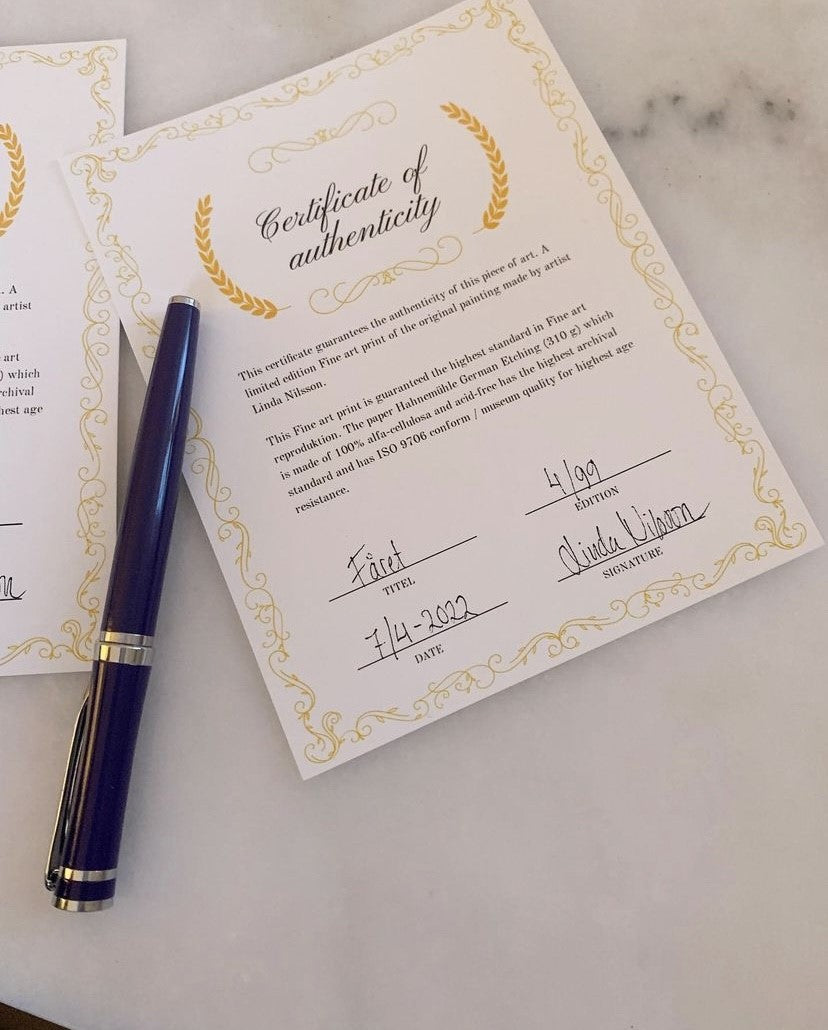 . A
artist
art
) which
rchival
hest age
Certificate of
authenticity
This certificate guarantees the authenticity of this piece of art. A
limited edition Fine art print of the original painting made by artist
Linda Nilsson.
This Fine art print is guaranteed the highest standard in Fine art
reproduktion. The paper Hahnemühle German Etching (310 g) which
is made of 100% alfa-cellulosa and acid-free has the highest archival
standard and has ISO 9706 conform / museum quality for highest age
resistance.
4/99
EDITION
Fåret
TITEL
Linda Nilsson
SIGNATURE
7/4-2022
DATE